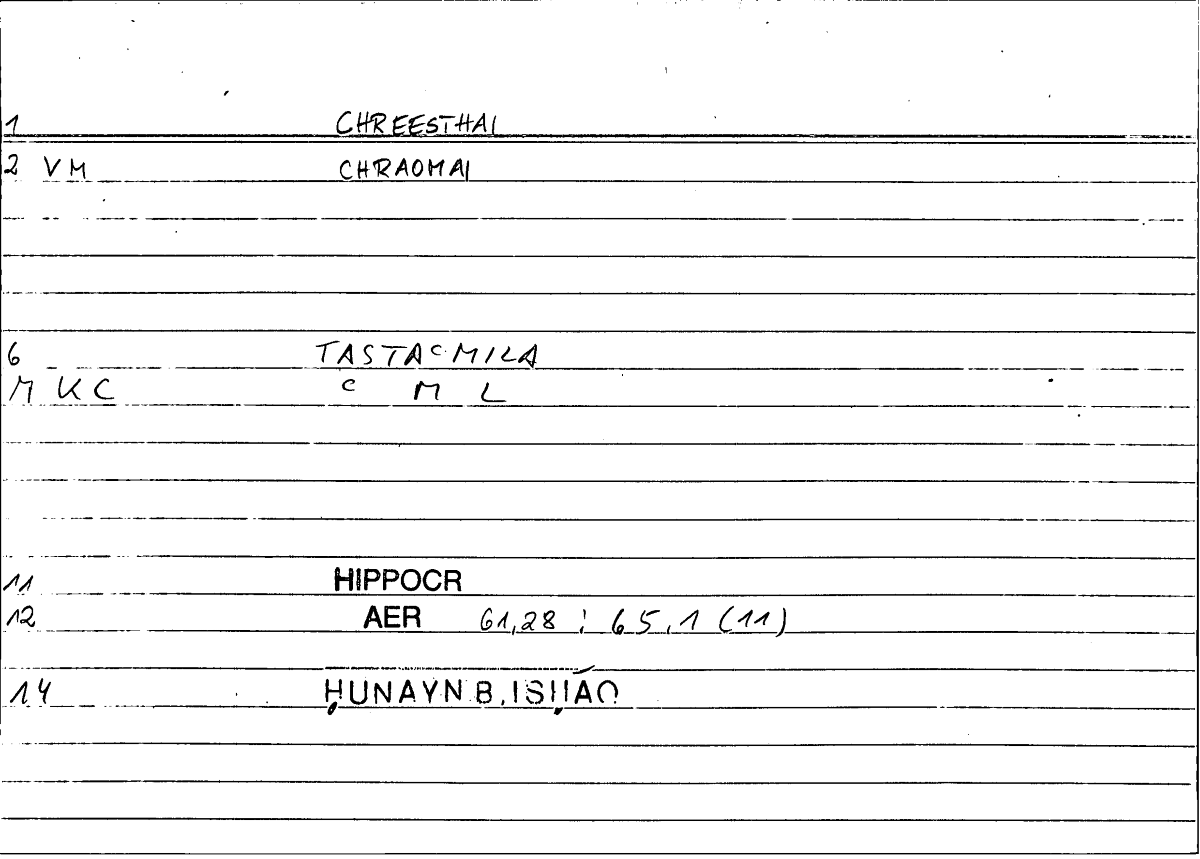 1 CHREESTHAI
2 VM CHRAOMAI
6 TASTAᶜMILA
M KC ᶜ M L
11 HIPPOCR
12 AER 61,28 ; 65,1 (11)
14 ḤUNAYN B. ISḤĀQ